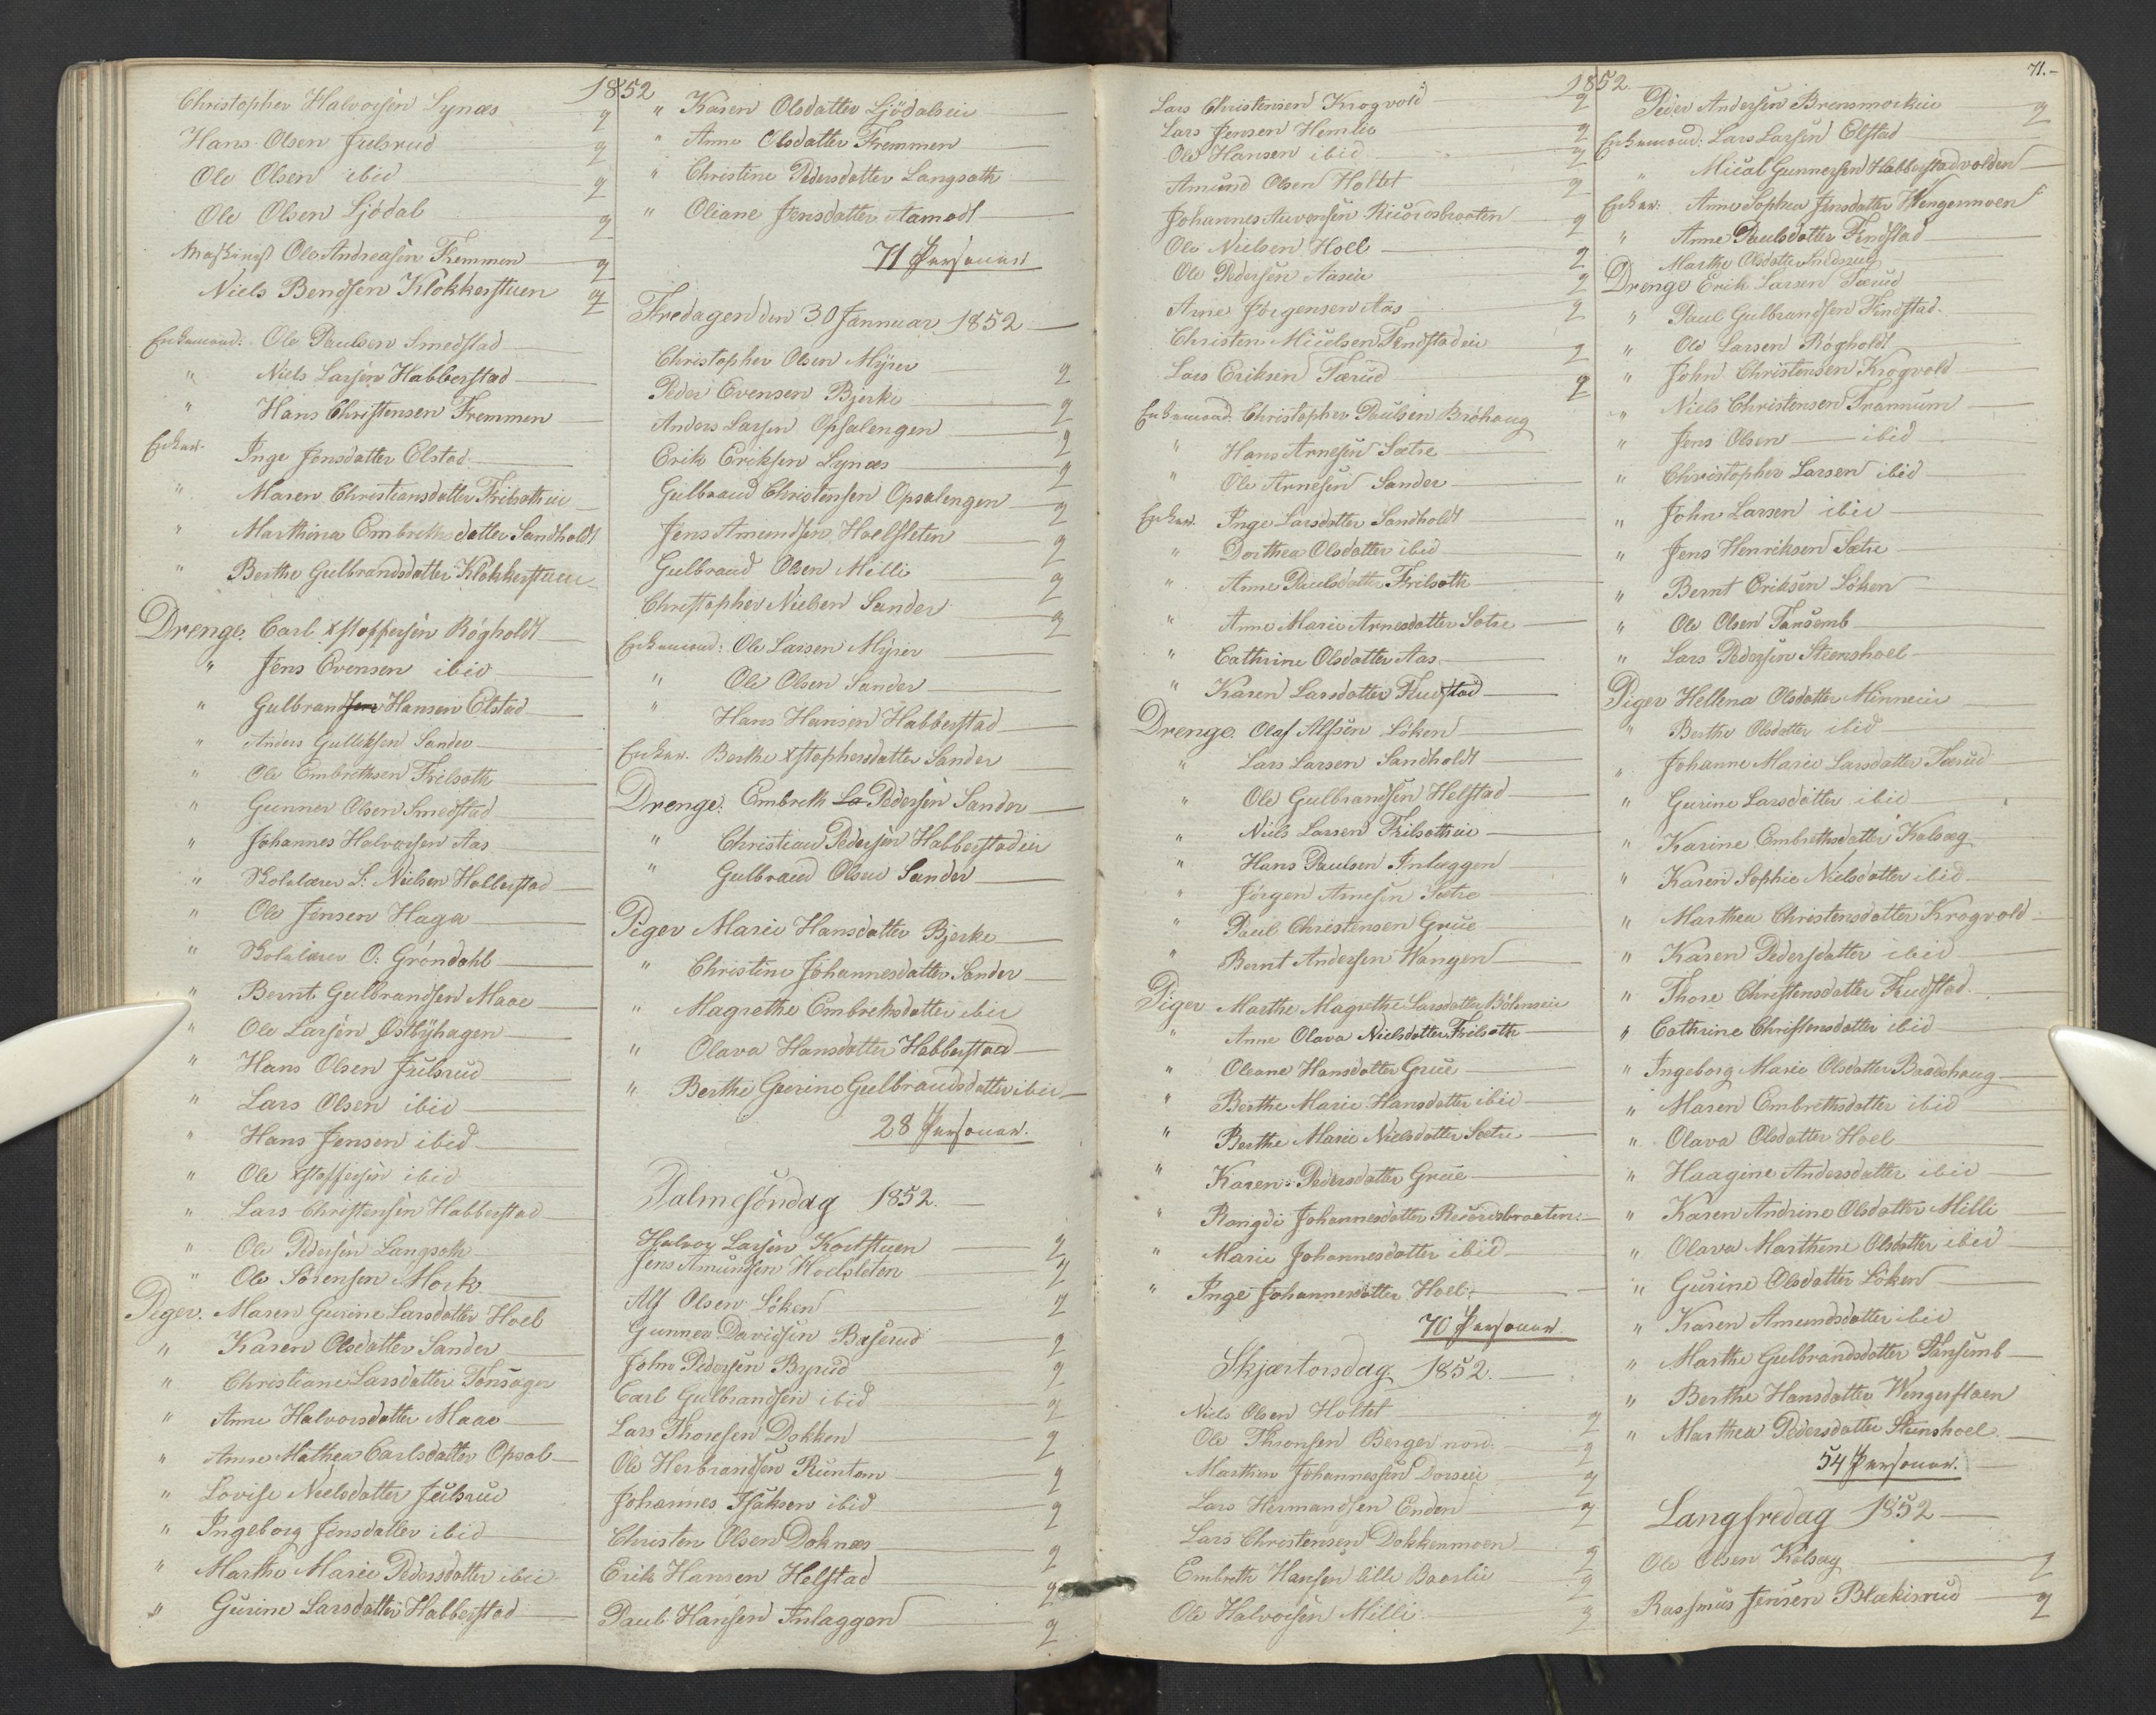 1852
Christopher Halvorsen Lynæs q
Hans Olsen Julsrud q
Ole Olsen ibid q
Ole Olsen Ljödal q
Maskinist Ole Andreasen Fremmen q
Niels Bendsen Klokkerstuen q
Enkemand: Ole Paulsen Smedstad
" Niels Larsen Habberstad
" Hans Christensen Fremmen
Enker. Inge Jensdatter Elstad
" Maren Christiansdatter Frilsætheie
" Marthina Embrethsdatter Sandholdt
" Berthe Gulbrandsdatter Klokkerstuen
Drenge: Carl Xstoffersen Rögholdt
" Jens Evensen ibid
" Gulbrand Hansen Elstad
" Anders Gulliksen Sander
" Ole Embrethsen Frilsæth
" Gunner Olsen Smedstad
" Johannes Halvorsen Aas
" Skolelærer S: Nielsen Habberstad
" Ole Jensen Haga
" Skolelærer O: Gröndahl
" Bernt Gulbrandsen Maae
" Ole Larsen Östbÿhagen
" Hans Olsen Julsrud
" Lars Olsen ibid
" Hans Jensen ibid
" Ole Xstoffersen ibid
" Lars Christensen Habberstad
" Ole Pedersen Langsæth
" Ole Sörensen Mork
Piger. Maren Gurine Larsdatter Hoel
" Karen Olsdatter Sander
" Christiane Larsdatter Tonsager
" Anne Halvorsdatter Maae
" Anne Mathea Carlsdatter Opsal
" Lovise Nielsdatter Julsrud
" Ingeborg Jensdatter ibid
" Marthe Marie Pedersdatter ibid
" Gurine Larsdatter Habberstad
" Karen Olsdatter Ljödalseie
" Anne Olsdatter Fremmen
" Christine Pedersdatter Langsæth
" Oliane Jensdatter Aamodt
71 Personer
Fredagen den 30 Jannuar 1852
Christopher Olsen Mÿrer q
Peder Evensen Bjerke q
Anders Larsen Opsalengen q
Erik Eriksen Lynæs q
Gulbrand Christensen Opsalengen q
Jens Amundsen Hoelsleten q
Gulbrand Olsen Milli q
Christopher Nielsen Sander q
Enkemand: Ole Larsen Mÿrer
" Ole Olsen Sander
" Hans Hansen Habberstad
Enker. Berthe Xstophersdatter Sander
Drenge: Embreth La Pedersen Sander
" Christian Pedersen Habberstadeie
" Gulbrand Olsen Sander
Piger Marie Hansdatter Bjerke
" Christine Johannesdatter Sander
" Magrethe Embrethsdatter ibid
" Olava Hansdatter Habberstad
" Berthe Gurine Gulbrandsdatter ibid
28 Personer.
Palmesöndag 1852.
Halvor Larsen Kortstuen q
Jens Amundsen Hoelsleten q
Alf Olsen Löken q
Gunner Davidsen Baserud q
John Pedersen Byrud q
Carl Gulbrandsen ibid q
Lars Thoresen Dokken q
Ole Herbrandsen Runtom q
Johannes Isaksen ibid q
Christen Olsen Doknæs q
Erik Hansen Helstad q
Paul Hansen Inlaggen q
1852
71.
Lars Christensen Krogvold q
Lars Jensen Hemlie q
Ole Hansen ibid q
Amund Olsen Holtet q
Johannes Auvensen Ricordsbraaten q
Ole Nielsen Hoel q
Ole Pedersen Aaseie q
Arne Jörgensen Aas q
Christen Micelsen Findstadeie q
Lars Eriksen Tærud q
Enkemand: Christopher Paulsen Bröhaug
" Hans Arnesen Sætre
" Ole Arnesen Sander
Enker. Inge Larsdatter Sandholdt
" Dorthea Olsdatter ibid
" Anne Paulsdatter Frilsæth
" Anne Marie Arnesdatter Sætre
" Cathrine Olsdatter Aas
" Karen Larsdatter Findstad
Drenge. Olaf Alfsen Löken
" Lars Larsen Sandholdt
" Ole Gulbrandsen Helstad
" Niels Larsen Frilsætheie
" Hans Paulsen Inlæggen
" Jörgen Arnesen Sætre
" Paul Christensen Grue
" Bernt Andersen Wangen
Piger Marthe Magrethe Larsdatter
" Anne Olava Nielsdatter Frilsæth
" Oleane Hansdatter Grue
" Berthe Marie Hansdatter ibid
" Berthe Marie Nielsdatter Sætre
" Karen Pedersdatter Grue
" Rangdi Johannesdatter Ricordsbraaten
" Marie Johannesdatter ibid
" Inge Johannesdatter Hoel
70 Personer
Skjærtorsdag 1852.
Niels Olsen Holtet q
Ole Thronsen Berger nord. q
Marthin Johannessen Dorseie q
Lars Hermandsen Enden q
Lars Christensen Dokkenmoen q
Embreth Hansen lille Baaslie q
Ole Halvorsen Milli q
Peder Andersen Brensmorkeie q
Enkemand: Lars Larsen Elstad
" Mical Gunnersen Habberstadvolden
Enker: Anne Sophea Jensdatter Wengermoen
" Anne Paulsdatter Findstad
Marthe Olsdatter
Drenge Erik Larsen Tærud
" Paul Gulbrandsen Findstad.
" Ole Larsen Rögholdt
" John Christensen Krogvold
" Niels Christensen Frannum
" Jens Olsen ibid
" Christopher Larsen ibid
" John Larsen ibid
" Jens Henriksen Sætre
" Bernt Eriksen Löken
" Ole Olsen Tansemb
" Lars Pedersen Steenshoel
Piger Hellena Olsdatter Minneeie
" Berthe Olsdatter ibid
" Johanne Marie Larsdatter Tærud
" Gurine Larsdatter ibid
" Karine Embrethsdatter Kalsæg
" Karen Sophie Nielsdatter ibid
" Marthea Christensdatter Krogvold
" Karen Pedersdatter ibid
" Thore Christensdatter Findstad
" Cathrine Christensdatter ibid
" Ingeborg Marie Olsdatter Baadshaug
" Maren Embrethsdatter ibid
" Olava Olsdatter Hoel
" Haagine Andersdatter ibid
" Karen Andrine Olsdatter Milli
" Olava Marthine Olsdatter ibid
" Gurine Olsdatter Löken
" Karen Amundsdatter ibid
" Marthe Gulbrandsdatter Tansemb
" Berthe Hansdatter Wengerflaen
" Marthea Pedersdatter Stenshoel
54 Personer.
Langfredag 1852
Ole Olsen Kalsæg q
Rassmus Jensen Blækisrud q